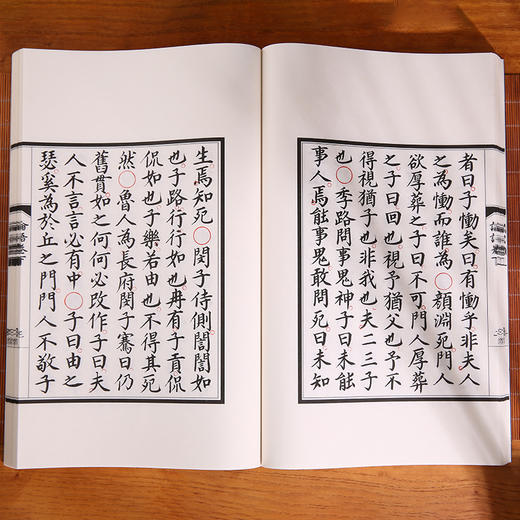 者曰子慟矣曰有慟乎非夫人
之為慟而誰為○顏淵死門人
欲厚葬之子曰不可門人厚葬
之子曰回也視予猶父也予不
得視猶子也非我也夫二三子
也○季路問事鬼神子曰未能
事人焉能事鬼敢問死曰未知
生焉知死○閔子侍側誾誾如
也子路行行如也冉有子貢侃
侃如也子樂若由也不得其死
然○魯人為長府閔子騫曰仍
舊貫如之何何必改作子曰夫
人不言言必有中○子曰由之
瑟奚為於丘之門門人不敬子